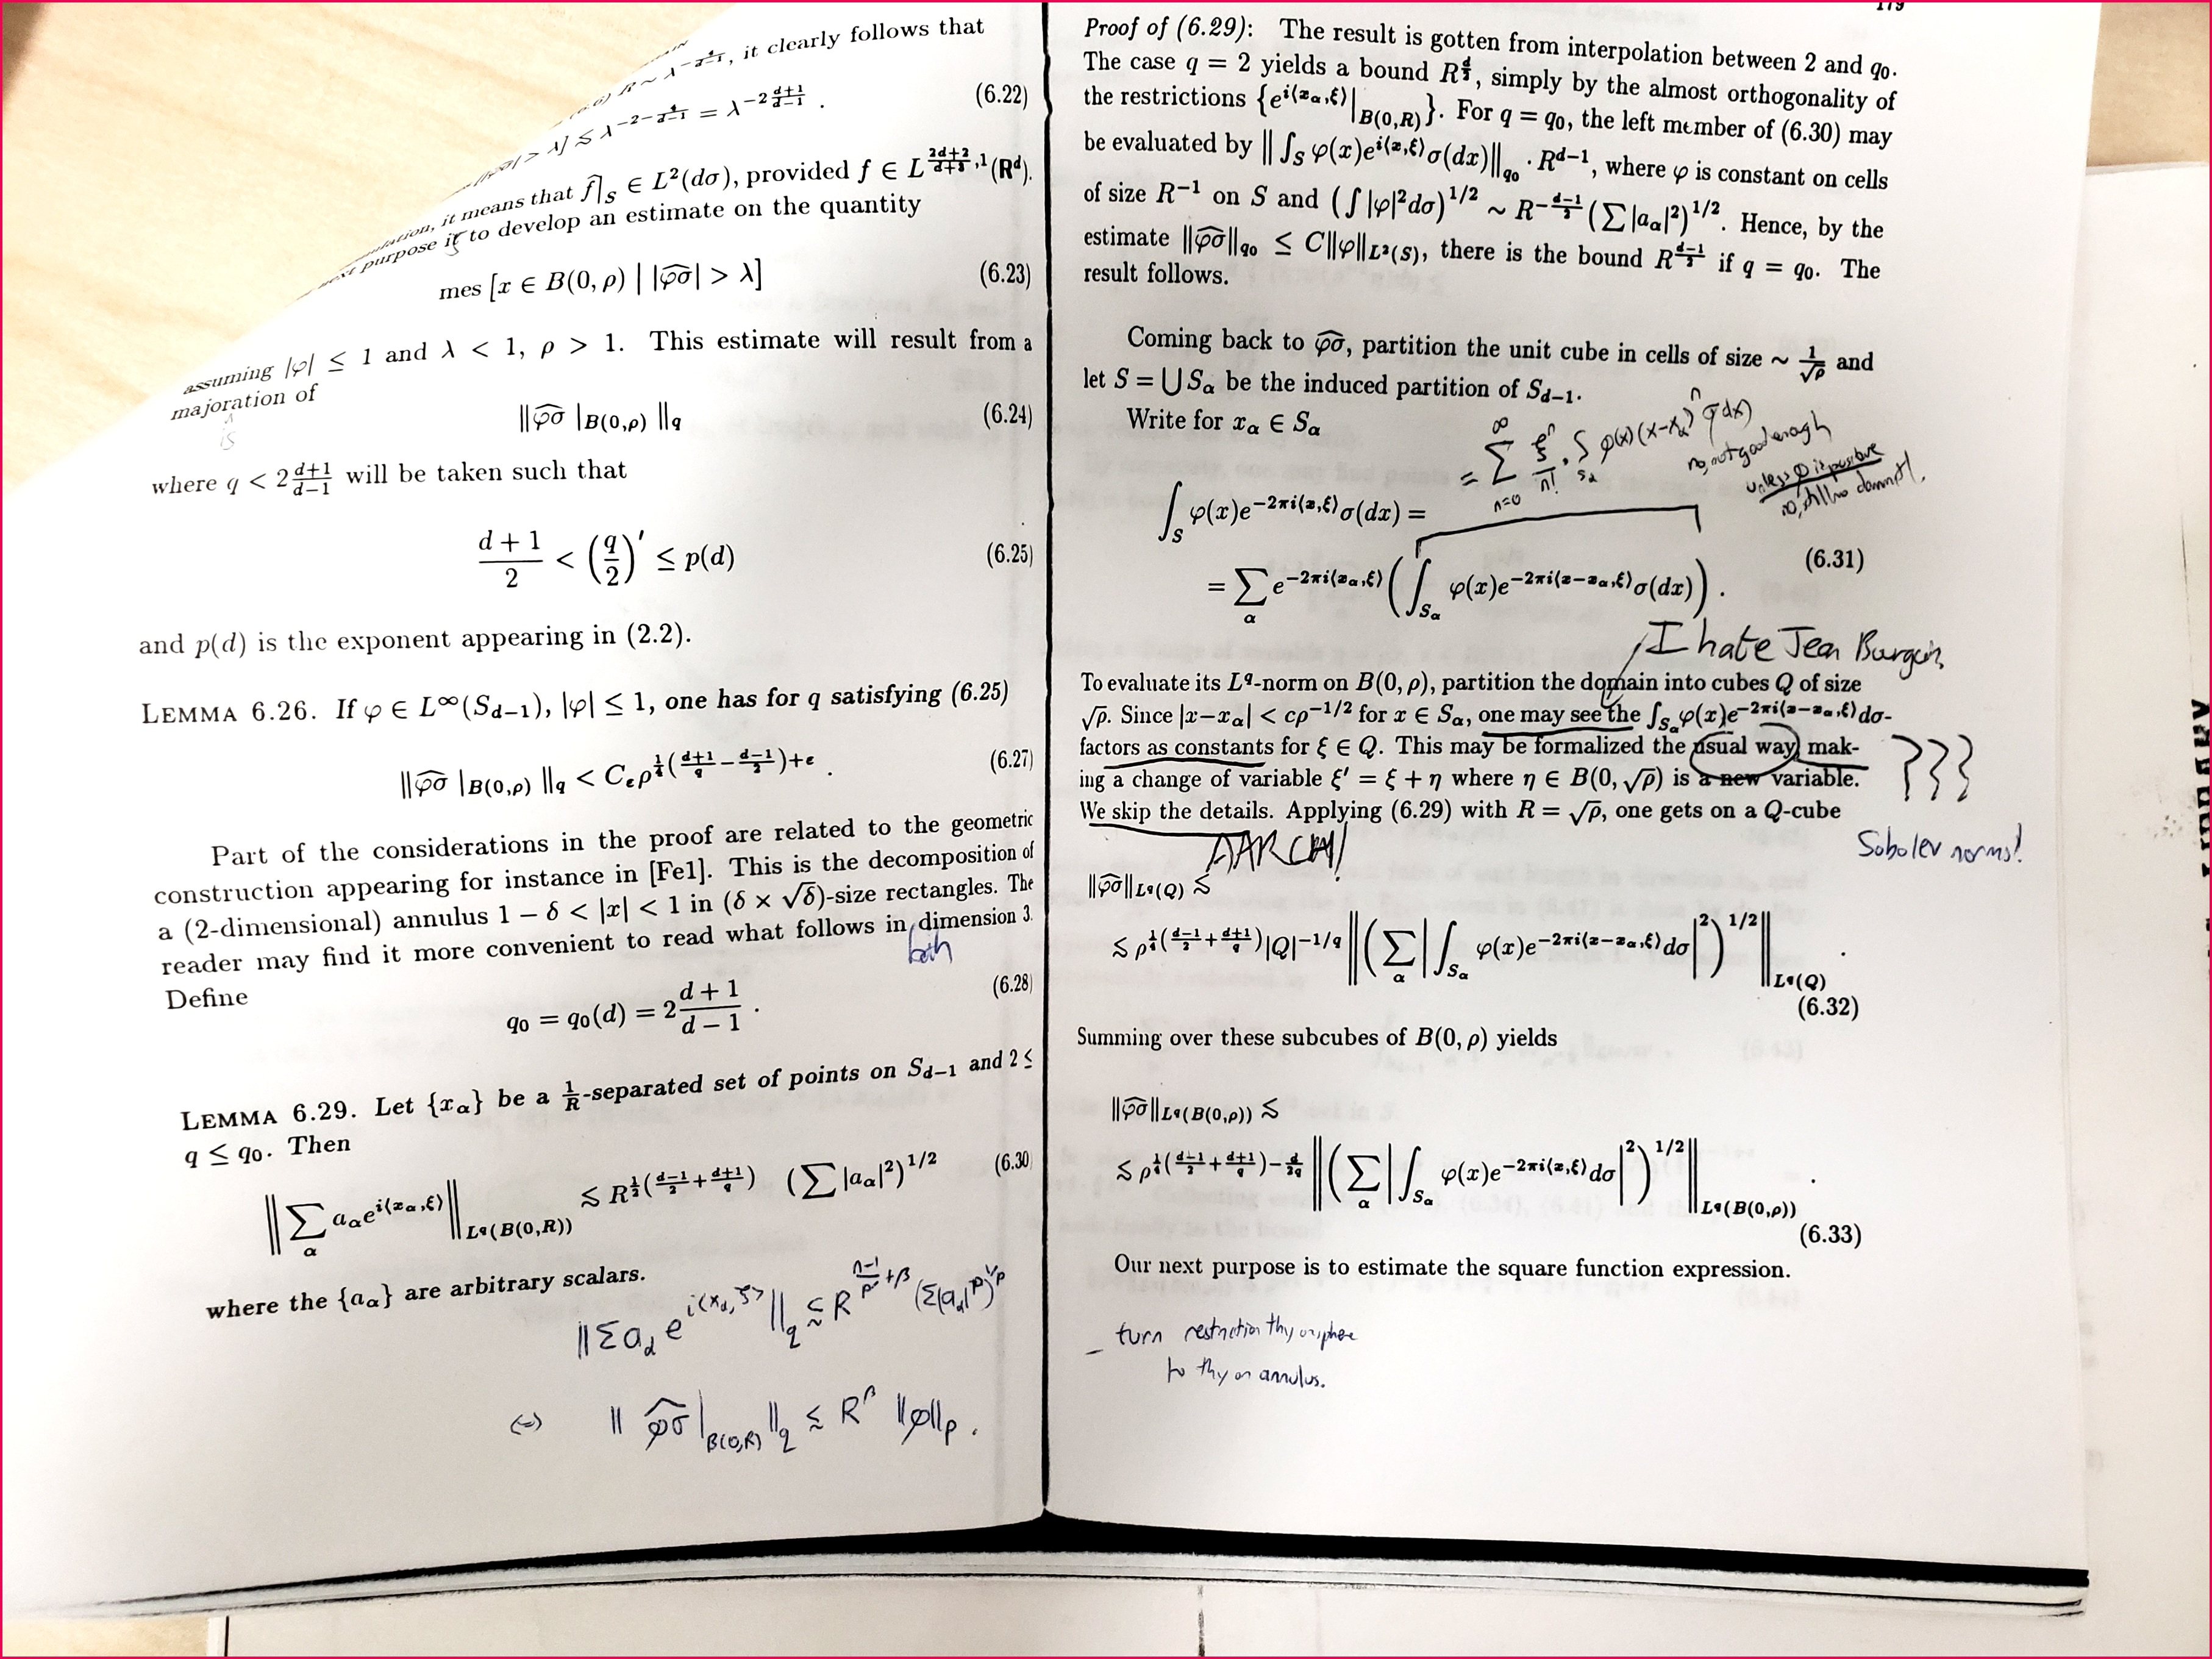 it clearly follows that
R ∼ λ^{-\frac{4}{d-1}}, 
> λ] ≲ λ^{-2-\frac{4}{d-1}} = λ^{-2\frac{d+1}{d-1}} . (6.22)
it means that \hat{f}|_S ∈ L^2(dσ), provided f ∈ L^{\frac{2d+2}{d+3},1}(R^d).
purpose is to develop an estimate on the quantity
mes [x ∈ B(0, ρ) | |\widehat{φσ}| > λ] (6.23)
assuming |φ| ≤ 1 and λ < 1, ρ > 1. This estimate will result from a
majoration of
is
‖\widehat{φσ} |_{B(0,ρ)} ‖_q (6.24)
where q < 2\frac{d+1}{d-1} will be taken such that
\frac{d+1}{2} < (\frac{q}{2})' ≤ p(d) (6.25)
and p(d) is the exponent appearing in (2.2).
LEMMA 6.26. If φ ∈ L^∞(S_{d-1}), |φ| ≤ 1, one has for q satisfying (6.25)
‖\widehat{φσ} |_{B(0,ρ)} ‖_q < C_ε ρ^{\frac{1}{4}(\frac{d+1}{q} - \frac{d-1}{2})+ε} . (6.27)
Part of the considerations in the proof are related to the geometric
construction appearing for instance in [Fe1]. This is the decomposition of
a (2-dimensional) annulus 1 − δ < |x| < 1 in (δ × √δ)-size rectangles. The
reader may find it more convenient to read what follows in dimension 3.
both
Define
q_0 = q_0(d) = 2\frac{d+1}{d-1} . (6.28)
LEMMA 6.29. Let {x_α} be a \frac{1}{R}-separated set of points on S_{d-1} and 2 ≤
q ≤ q_0. Then
‖∑_α a_α e^{i⟨x_α,ξ⟩}‖_{L^q(B(0,R))} ≲ R^{\frac{1}{2}(\frac{d-1}{2}+\frac{d+1}{q})} (∑|a_α|^2)^{1/2} (6.30)
where the {a_α} are arbitrary scalars.
‖Σ a_α e^{i<x_α,ξ>}‖_q ≲ R^{\frac{n-1}{p'}+β} (Σ|a_α|^p)^{1/p}
(=) ‖ \widehat{φσ}|_{B(0,R)} ‖_q ≲ R^β ‖φ‖_p .
179
Proof of (6.29): The result is gotten from interpolation between 2 and q_0.
The case q = 2 yields a bound R^{\frac{d}{2}}, simply by the almost orthogonality of
the restrictions {e^{i⟨x_α,ξ⟩}|_{B(0,R)}}. For q = q_0, the left member of (6.30) may
be evaluated by ‖∫_S φ(x)e^{i⟨x,ξ⟩}σ(dx)‖_{q_0} · R^{d-1}, where φ is constant on cells
of size R^{-1} on S and (∫|φ|^2dσ)^{1/2} ∼ R^{-\frac{d-1}{2}}(∑|a_α|^2)^{1/2}. Hence, by the
estimate ‖\widehat{φσ}‖_{q_0} ≤ C‖φ‖_{L^2(S)}, there is the bound R^{\frac{d-1}{2}} if q = q_0. The
result follows.
Coming back to \widehat{φσ}, partition the unit cube in cells of size ∼ \frac{1}{√ρ} and
let S = ⋃ S_α be the induced partition of S_{d-1}.
Write for x_α ∈ S_α
= ∑_{n=0}^{∞} \frac{ξ^n}{n!} · ∫_{S_α} φ(x)(x-x_α)^n σ(dx)
no, not good enough
unless φ is positive
no, still no
∫_S φ(x)e^{-2πi⟨x,ξ⟩}σ(dx) =
= ∑_α e^{-2πi⟨x_α,ξ⟩} (∫_{S_α} φ(x)e^{-2πi⟨x-x_α,ξ⟩}σ(dx)) . (6.31)
I hate Jean Burgain,
To evaluate its L^q-norm on B(0, ρ), partition the domain into cubes Q of size
√ρ. Since |x−x_α| < cρ^{-1/2} for x ∈ S_α, one may see the ∫_{S_α} φ(x)e^{-2πi⟨x-x_α,ξ⟩}dσ-
factors as constants for ξ ∈ Q. This may be formalized the usual way mak-
ing a change of variable ξ' = ξ + η where η ∈ B(0, √ρ) is a new variable.
???
We skip the details. Applying (6.29) with R = √ρ, one gets on a Q-cube
AARGH!
Sobolev norms!
‖\widehat{φσ}‖_{L^q(Q)} ≲
≲ ρ^{\frac{1}{4}(\frac{d-1}{2}+\frac{d+1}{q})}|Q|^{-1/q} ‖(∑_α |∫_{S_α} φ(x)e^{-2πi⟨x-x_α,ξ⟩}dσ|^2)^{1/2}‖_{L^q(Q)} .
(6.32)
Summing over these subcubes of B(0, ρ) yields
‖\widehat{φσ}‖_{L^q(B(0,ρ))} ≲
≲ ρ^{\frac{1}{4}(\frac{d-1}{2}+\frac{d+1}{q})-\frac{d}{2q}} ‖(∑_α |∫_{S_α} φ(x)e^{-2πi⟨x,ξ⟩}dσ|^2)^{1/2}‖_{L^q(B(0,ρ))} .
(6.33)
Our next purpose is to estimate the square function expression.
– turn restriction thy on sphere
to thy on annulus.